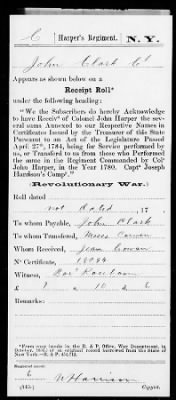 C | Harper's Regiment. | N. Y.
John Clark
Appears as shown below on a
Receipt Roll*
under the following heading:
"We the Subscribers do hereby Acknowledge
to have Receivd of Colonel John Harper the sev-
eral sums Annexed to our Respective Names in
Certificates Issued by the Treasurer of this State
Pursuant to an Act of the Legislature Passed
April 27th, 1784, being for Service performed by
us, or Transferd to us from those who Performed
the same in the Regiment Commanded by Colo
John Harper, in the Year 1780. Capt Joseph
Harrison's Compy."
(Revolutionary War.)
Roll dated
not dated, 17 .
To whom Payable, John Clark
To whom Transferred,
Whom Received,
No Certificate,
Witness,
£ 7 10
Remarks:
*From copy made in the R. & P. Office, War Department, in
New York—R. & P.
Copyist.